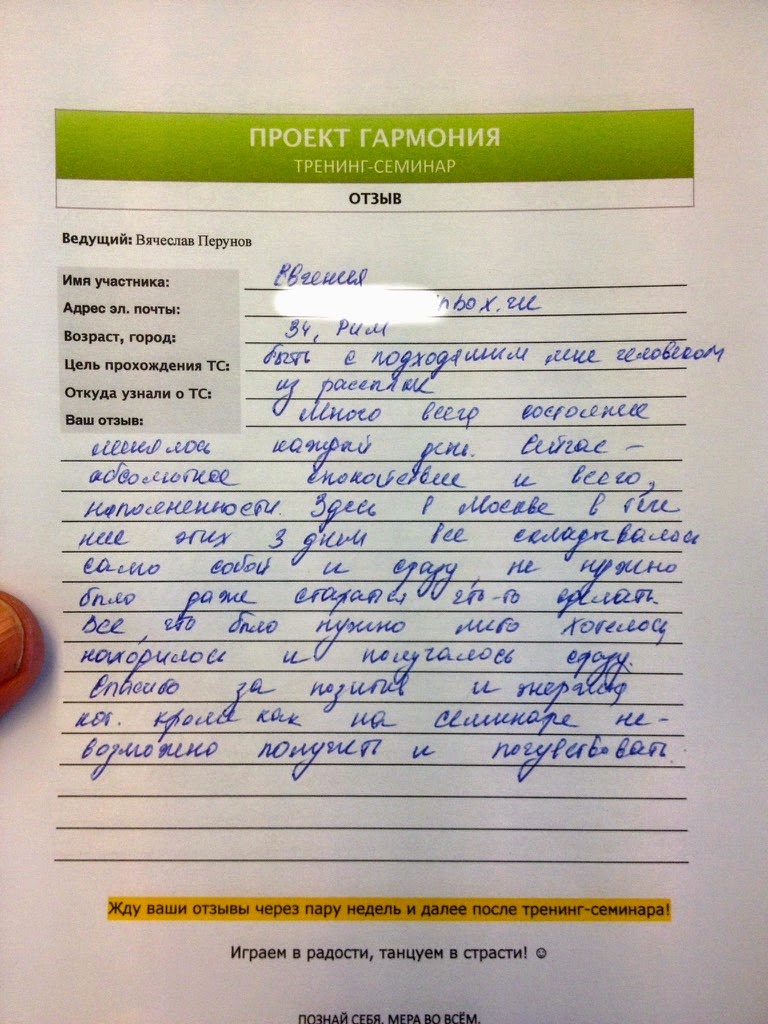 ПРОЕКТ ГАРМОНИЯ
ТРЕНИНГ-СЕМИНАР
ОТЗЫВ
Ведущий: Вячеслав Перунов
Имя участника: Евгения
Адрес эл. почты: inbox.ru
Возраст, город: 34, Рим
Цель прохождения ТС: быть с подходящим мне человеком
Откуда узнали о ТС: из рассылок
Ваш отзыв: Много всего состояние
менялось каждый день. Сейчас –
абсолютное спокойствие и всего,
наполненности. Здесь в Москве в тече
ние этих 3 дней все складывалось
само собой и сразу, не нужно
было даже стараться что-то сделать.
Все, что было нужно либо хотелось
находилось и получалось сразу.
Спасибо за позитив и энергию,
кот. кроме как на семинаре не-
возможно получить и почувствовать.
Жду ваши отзывы через пару недель и далее после тренинг-семинара!
Играем в радости, танцуем в страсти! ☺
ПОЗНАЙ СЕБЯ. МЕРА ВО ВСЁМ.